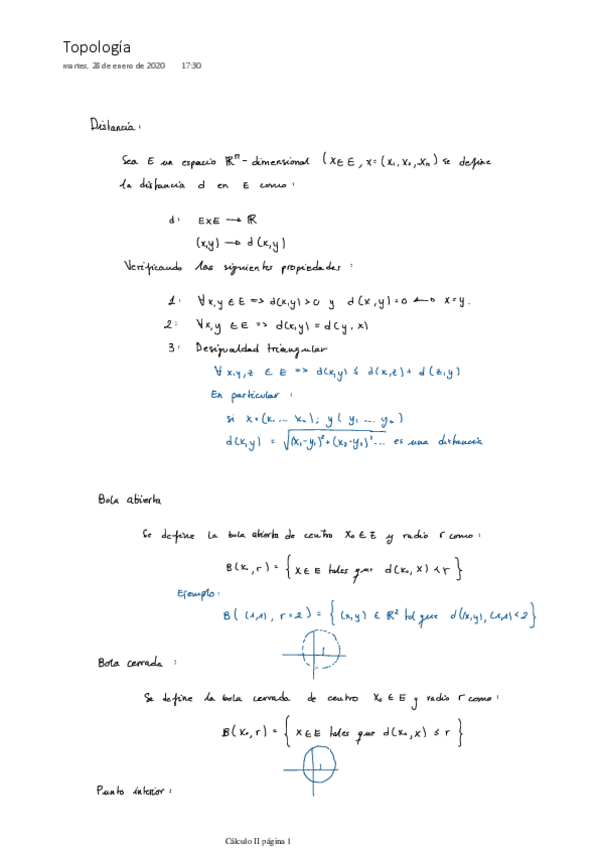 Topología
martes, 28 de enero de 2020 17:30
Distancia:
Sea E un espacio ℝⁿ- dimensional (x∈E, x=(x₁,x₂,..xₙ) se define
la distancia d en E como:
d: E×E → ℝ
(x,y) → d(x,y)
Verificando las siguientes propiedades :
1: ∀x,y ∈ E => d(x,y)>0 y d(x,y)=0 ↔ x=y.
2: ∀x,y ∈ E => d(x,y) = d(y,x)
3: Desigualdad triangular
∀ x,y,z ∈ E => d(x,y) ≤ d(x,z)+ d(z,y)
En particular :
si x=(x₁ ... xₙ); y(y₁ ... yₙ)
d(x,y) = √(x₁-y₁)²+(x₂-y₂)²... es una distancia
Bola abierta
Se define la bola abierta de centro x₀ ∈ E y radio r como:
B(x₀,r) = { x∈E tales que d(x₀,x) < r }
Ejemplo:
B( (1,1), r=2) = { (x,y) ∈ ℝ² tal que d((x,y),(1,1)<2 }
Bola cerrada :
Se define la bola cerrada de centro x₀ ∈ E y radio r como:
B(x₀,r) = { x∈E tales que d(x₀,x) ≤ r }
Punto interior:
Cálculo II página 1